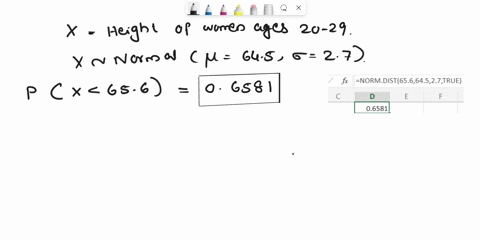 X = Height of women ages 20-29.
X ~ Normal ( μ = 64.5, σ = 2.7).
P ( X < 65.6) = 0.6581
fx =NORM.DIST(65.6,64.5,2.7,TRUE)
C D E F
0.6581